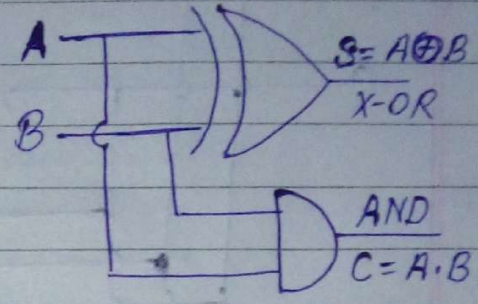 A
S = A⊕B
X-OR
B
AND
C = A·B